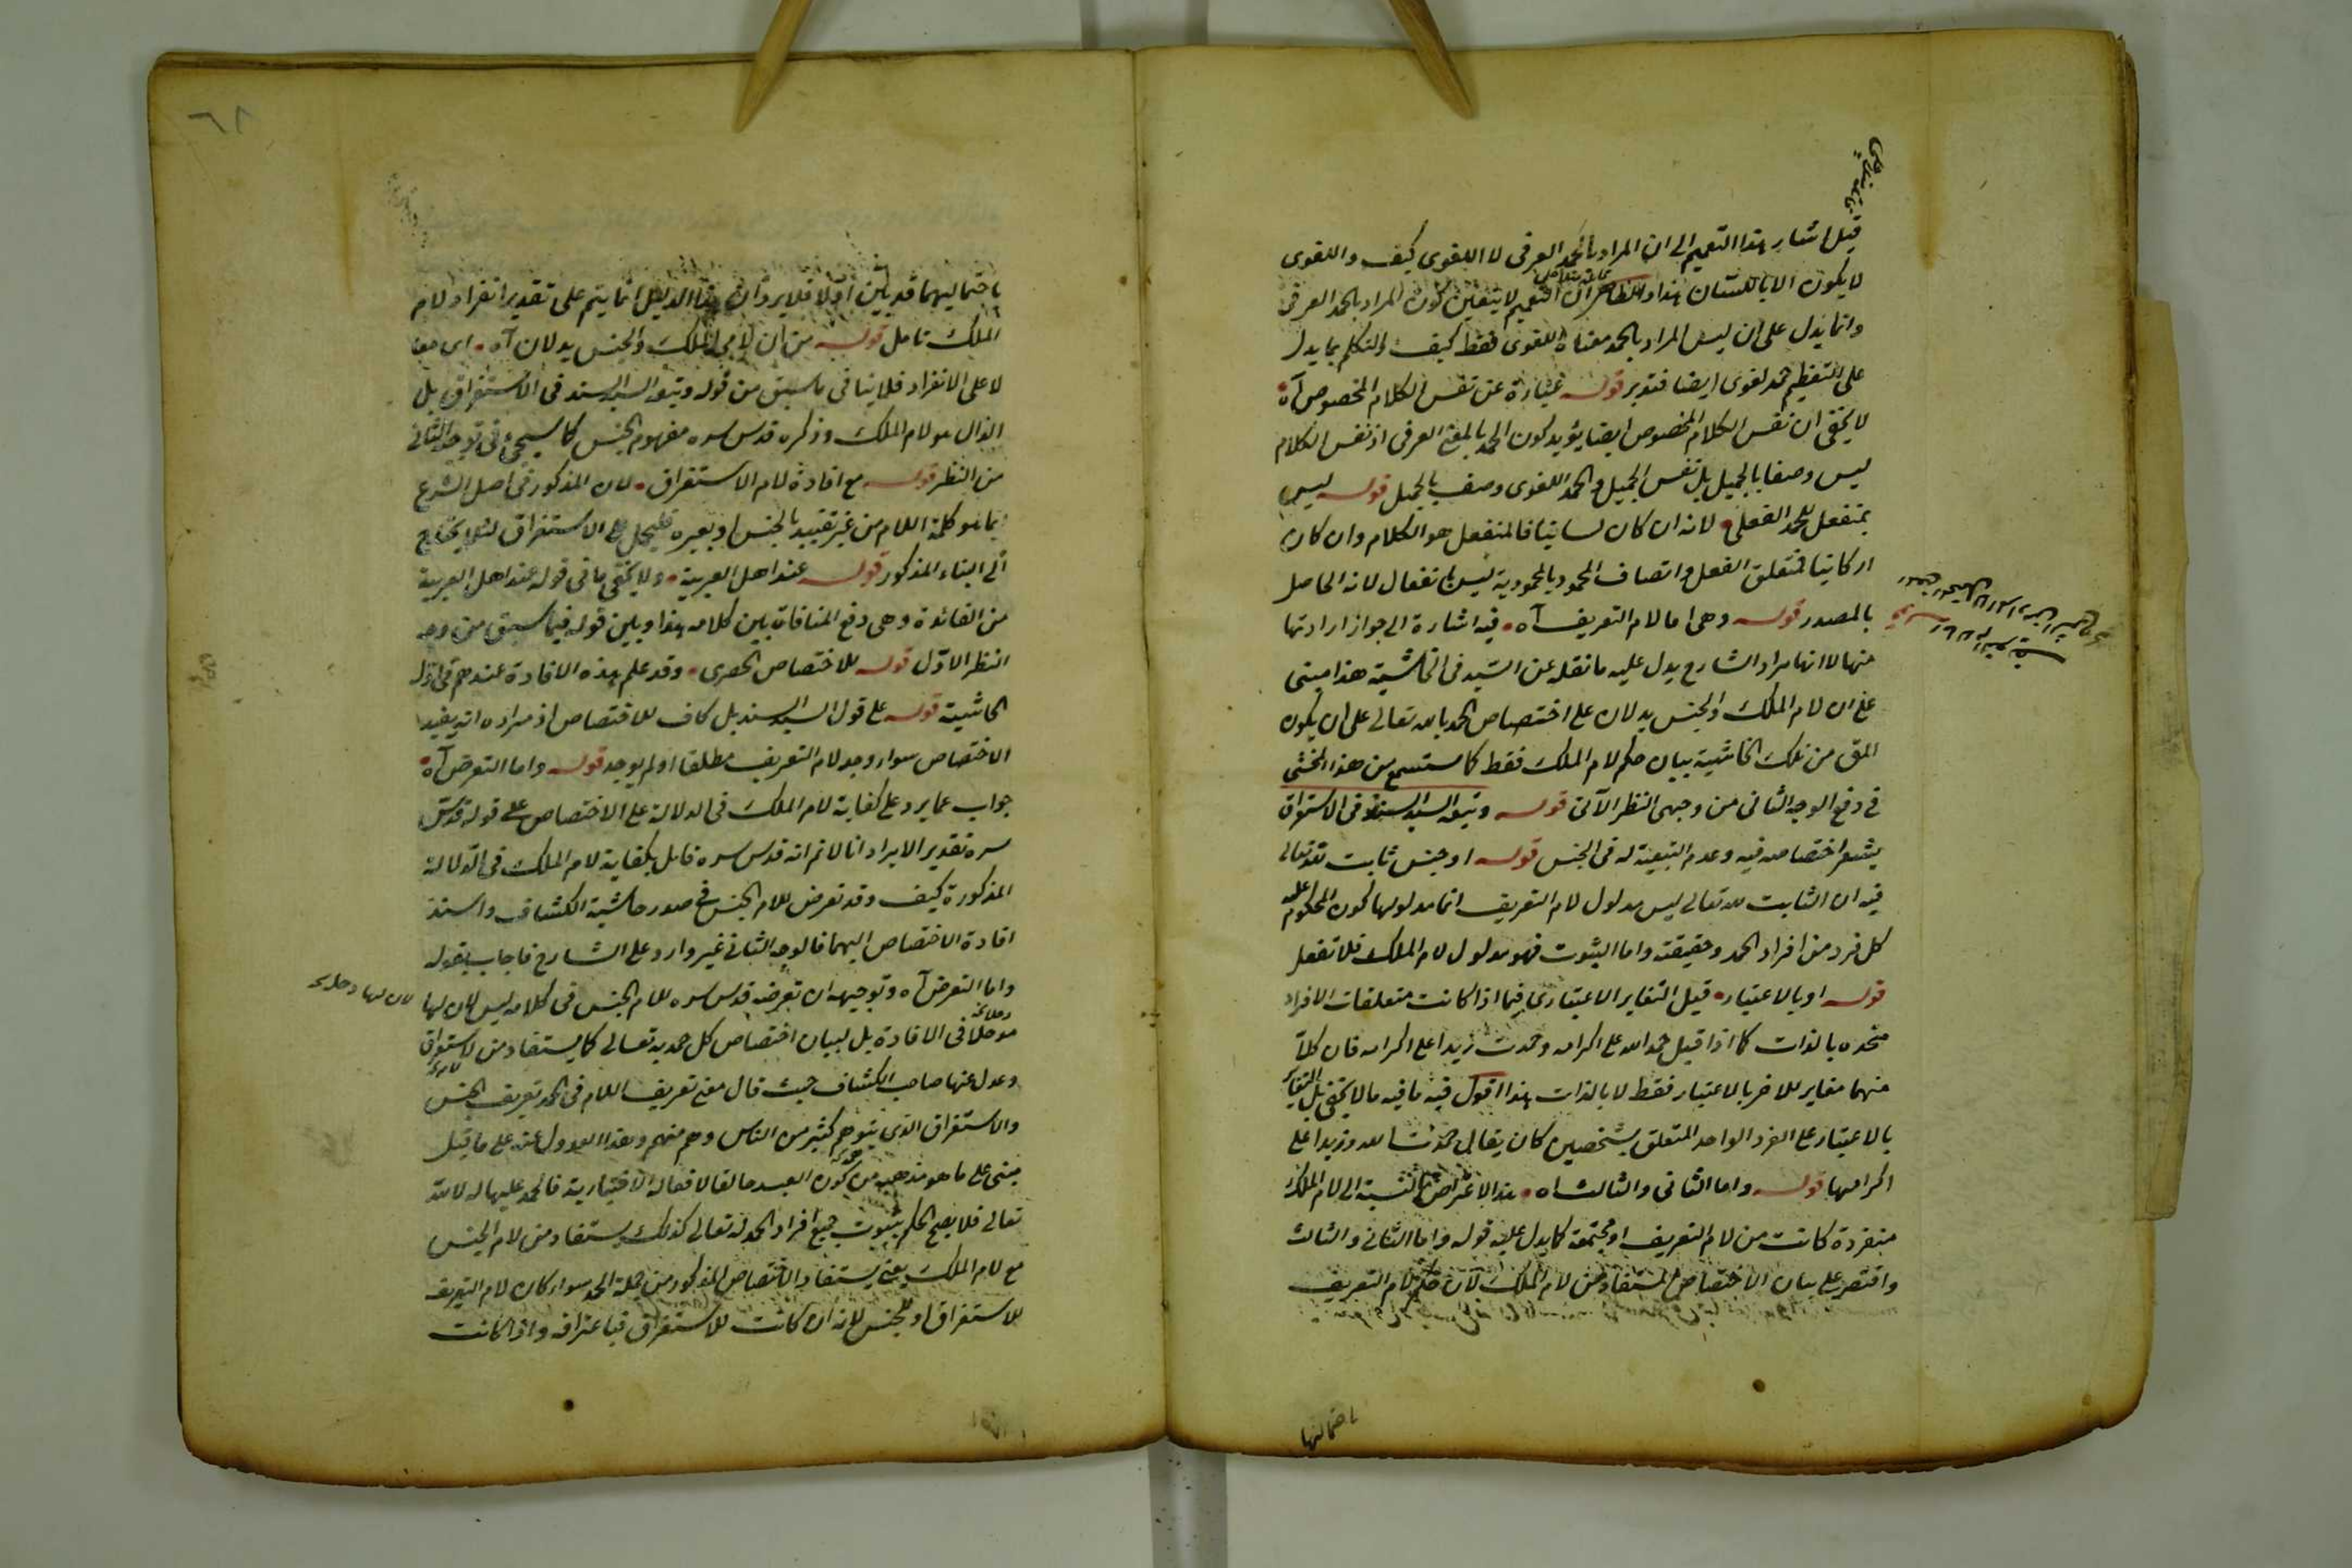 قيل اشار بهذا التعميم الى ان المراد بالحمد العرفى لا اللغوى كيف واللغوى
لا يكون الا باللسان هذا والظاهر ان التعميم لا يتعين كون المراد بالحمد العرفى
وانما يدل على ان ليس المراد بالحمد معناه اللغوى فقط كيف والتكلم بما يدل
على التعظيم حمد لغوى ايضا فتدبر قوله عبارة عن نفس الكلام المخصوص آه
لا يخفى ان نفس الكلام المخصوص ايضا يؤيد كون الحمد بالمعنى العرفى اذ نفس الكلام
ليس وصفا بالجميل بل نفس الجميل والحمد اللغوى وصف بالجميل قوله ليس
بمنفعل للحمد الفعلى لانه ان كان لسانيا فالمنفعل هو الكلام وان كان
اركانيا فمتعلق الفعل واتصاف المحمود بالمحمودية ليس بانفعال لانه الحاصل
بالمصدر قوله وهى اما لام التعريف آه فيه اشارة الى جواز ارادتها
منها لا انها مراد الشارح يدل عليه ما نقله عن السيد فى الحاشية هذا مبنى
على ان لام الملك والجنس يدلان على اختصاص الحمد بالله تعالى على ان يكون
المق من تلك الحاشية بيان حكم لام الملك فقط كما ستسمع من هذا المحشى
فى دفع الوجه الثانى من وجهى النظر الآتى قوله وتبعه السيد السند فى الاستغراق
يشعر اختصاصه فيه وعدم التبعية له فى الجنس قوله او جنس ثابت لله تعالى
فيه ان الثابت لله تعالى ليس مدلول لام التعريف انما مدلولها كون المحكوم عليه
كل فرد من افراد الحمد وحقيقته واما الثبوت فهو مدلول لام الملك فلا تغفل
قوله او بالاعتبار قيل التغاير الاعتبارى فيما اذا كانت متعلقات الافراد
متحده بالذات كما اذا قيل حمد الله على اكرامه وحمدت زيدا على اكرامه فان كلا
منهما مغاير للاخر بالاعتبار فقط لا بالذات هذا اقول فيه ما فيه ما لا يخفى بل التغاير
بالاعتبار على الفرد الواحد المتعلق بشخصين كان يقال حمدت الله وزيدا على
اكرامهما قوله واما الثانى والثالث اه هذا الاعتراض بالنسبة الى لام الملك
منفردة كانت من لام التعريف او مجتمعة كما يدل عليه قوله واما الثانى والثالث
واقتصر على بيان الاختصاص المستفاد من لام الملك لان حكم لام التعريف
باحتماليهما
٦٨
باحتماليهما قد بين اولا فلا يرد ان هذا الدليل انما يتم على تقدير انفراد لام
الملك تامل قوله من ان لامى الملك والجنس يدلان آه اى معا
لا على الانفراد فلا ينافى ما سبق من قوله وتبعه السيد السند فى الاستغراق بل
الدال هو لام الملك وذكره قدس سره مفهوم الجنس كما سيجئ فى توجيه الثانى
من النظر قوله مع افادة لام الاستغراق لان المذكور فى اصل الشرع
انما هو كلمة اللام من غير تقييد بالجنس او بغيره فليحمل على الاستغراق لئلا يحتاج
الى البناء المذكور قوله عند اهل العربية ولا يخفى ما فى قوله عند اهل العربية
من الفائدة وهى دفع المنافات بين كلامه هذا وبين قوله فيما سبق من وجه
النظر الاول قوله للاختصاص الحصرى وقد علم هذه الافادة عندهم فى اول
الحاشية قوله على قول السيد السند بل كاف للاختصاص اذ مراده انه يفيد
الاختصاص سواء وجد لام التعريف مطلقا او لم يوجد قوله واما التعرض آه
جواب عما يرد على كفاية لام الملك فى الدلالة على الاختصاص على قوله قدس
سره تقدير الايراد انا لانم انه قدس سره قايل بكفاية لام الملك فى الدلالة
المذكورة كيف وقد تعرض للام الجنس فى صدر حاشية الكشاف واسند
افادة الاختصاص اليهما فالوجه الثانى غير وارد على الشارح فاجاب بقوله
واما التعرض آه وتوجيهه ان تعرضه قدس سره للام الجنس فى كلامه ليس لان لها
مدخلا فى الافادة بل لبيان اختصاص كل حمد به تعالى كما يستفاد من الاستغراق
وعدل عنها صاحب الكشاف حيث قال معنى تعريف اللام فى الحمد تعريف الجنس
والاستغراق الذى يتوهم كثير من الناس وهم منهم وهذا العدول عنه على ما قيل
مبنى على ما هو مذهبه من كون العبد خالقا لافعاله الاختيارية فالحمد عليها له لا لله
تعالى فلا يصح الحكم بثبوت جميع افراد الحمد له تعالى كذلك يستفاد من لام الجنس
مع لام الملك يعنى يستفاد الاختصاص المذكور من جملة الحمد سواء كان لام التعريف
للاستغراق او للجنس لانه ان كانت للاستغراق فباعترافه واذا كانت